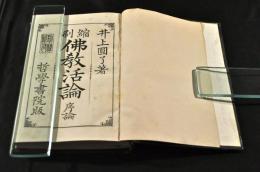 井上圓了著
縮刷
佛教活論 序論
哲學書院版